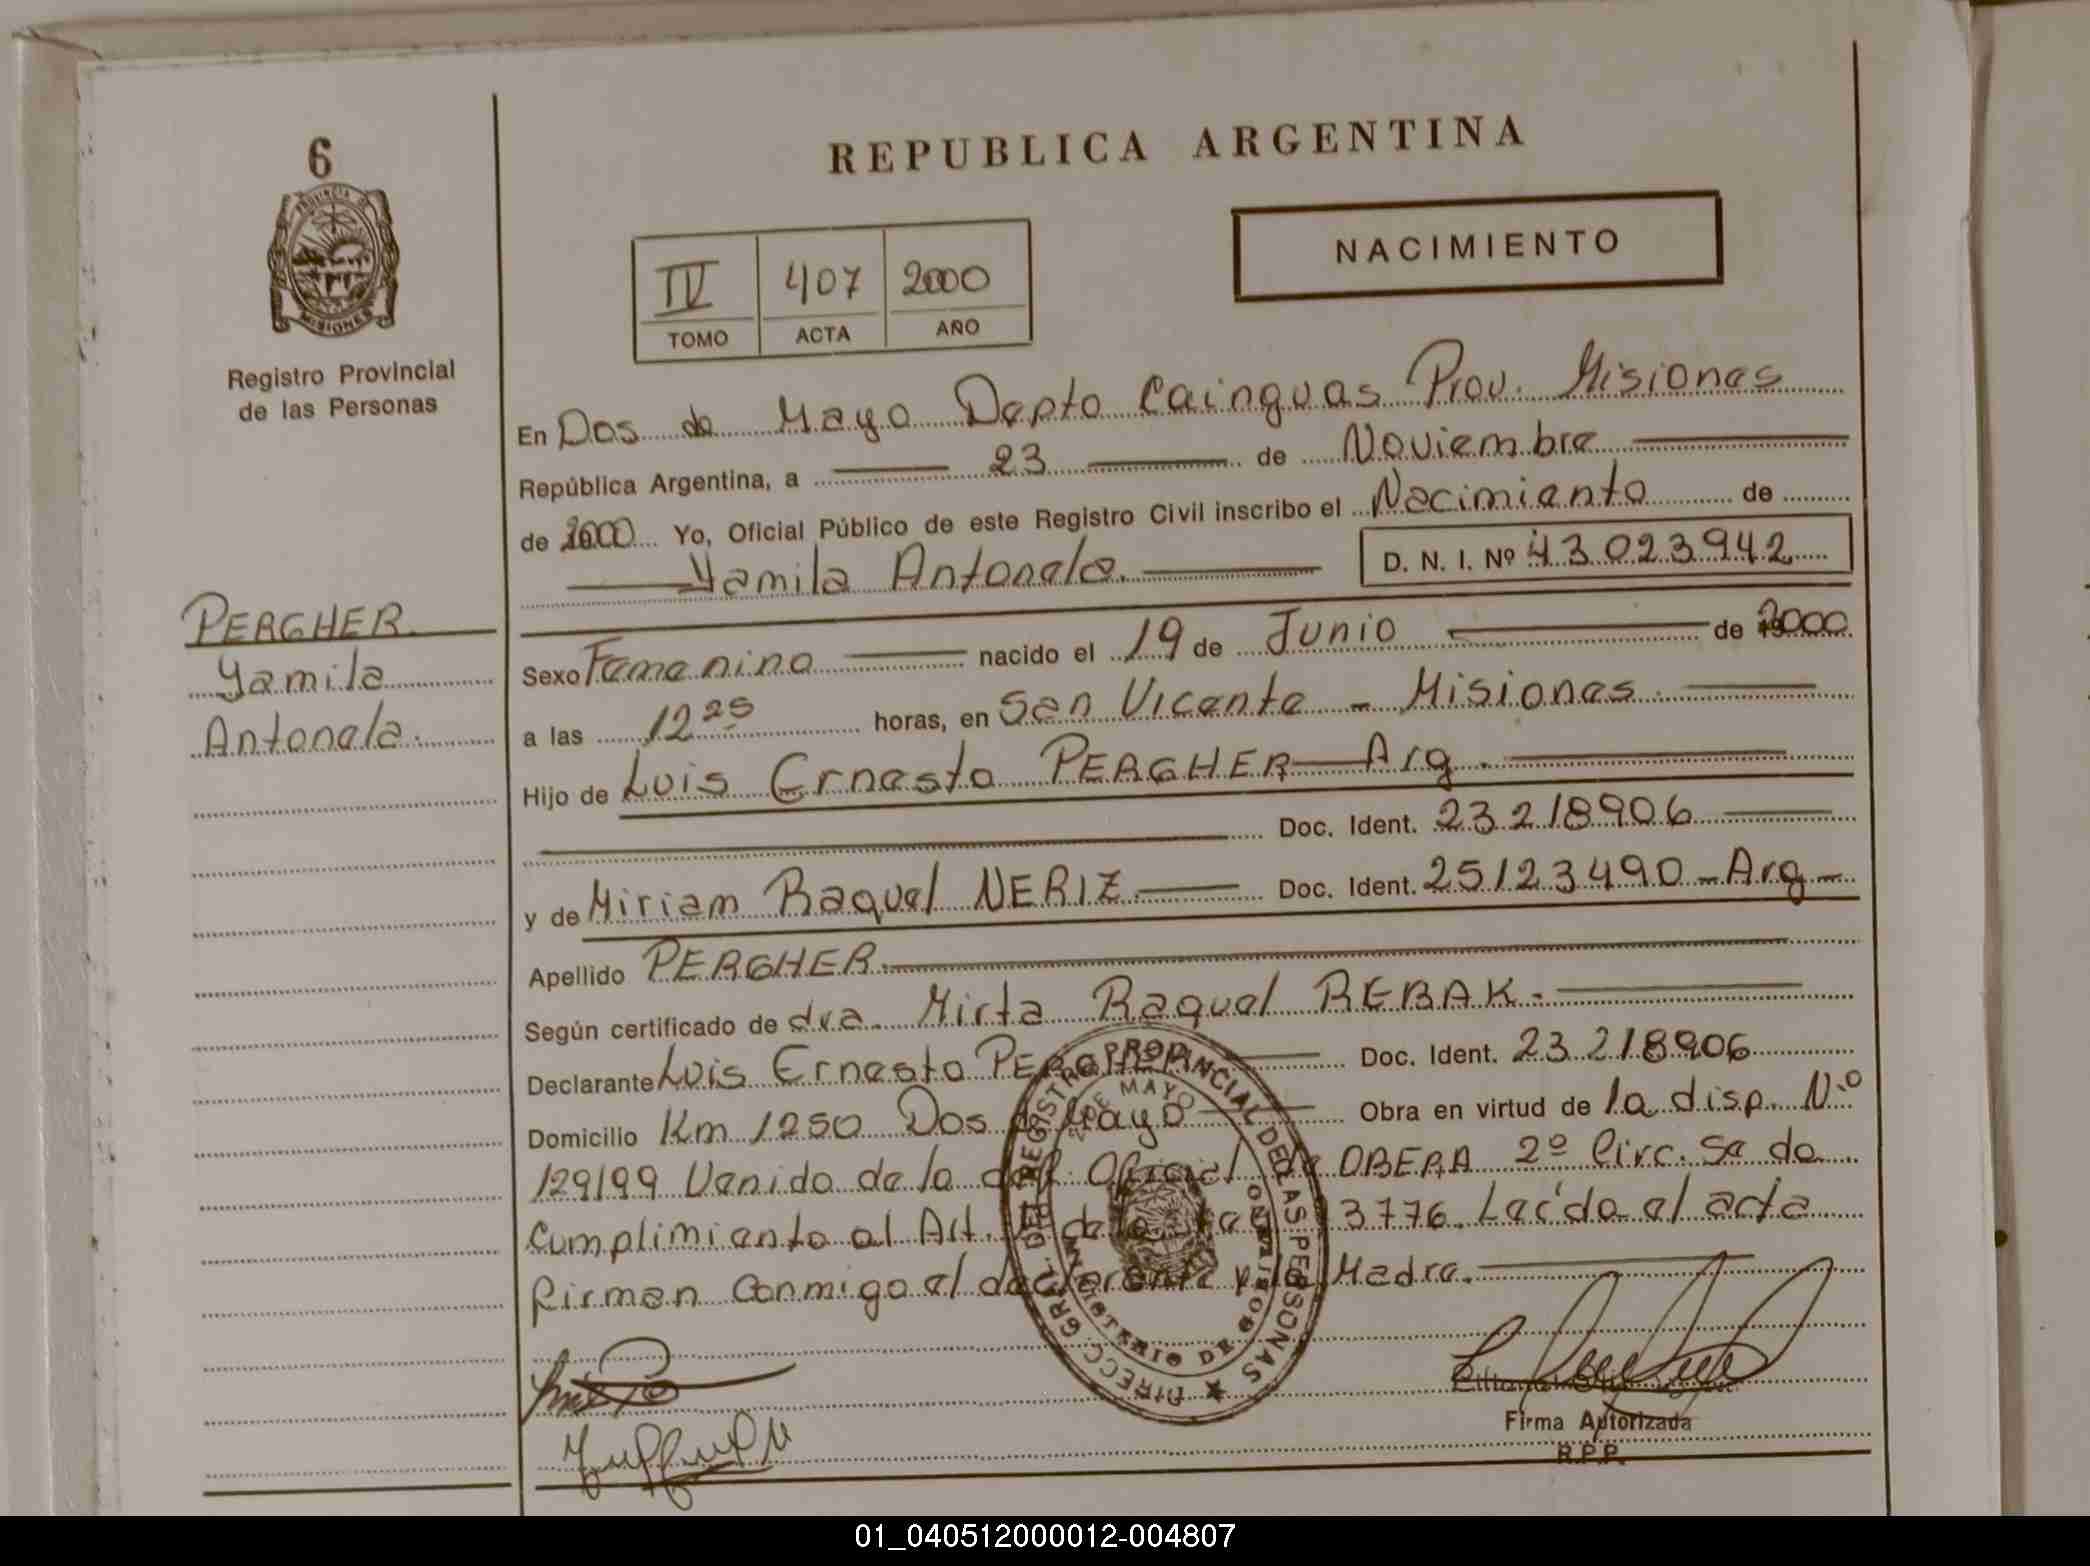 6
PROVINCIA DE
MISIONES
Registro Provincial
de las Personas
PERGHER
Yamila
Antonela.
REPUBLICA ARGENTINA
NACIMIENTO
IV 407 2000
TOMO ACTA AÑO
En Dos de Mayo Depto Cainguas Prov. Misiones
República Argentina, a 23 de Noviembre
de 2000 Yo, Oficial Público de este Registro Civil inscribo el Nacimiento de
Yamila Antonela. D. N. I. Nº 43023942
Sexo Femenino nacido el 19 de Junio de 2000
a las 12 25 horas, en San Vicente - Misiones.
Hijo de Luis Ernesto PERGHER Arg.
Doc. Ident. 23218906
y de Miriam Raquel NERIZ. Doc. Ident. 25123490 - Arg -
Apellido PERGHER.
Según certificado de dra. Mirta Raquel REBAK.
Declarante Luis Ernesto PERGHER Doc. Ident. 23218906
Domicilio Km 1250 Dos de Mayo Obra en virtud de la disp. N.º
129/99 Venida de la del. Oficial de OBERA 2º Circ. Se da
cumplimiento al Art. de la 3776. Leída el acta
firman conmigo el declarante y la Madre.
DIRECC. GRAL. DEL REGISTRO PROVINCIAL DE LAS PERSONAS
2 DE MAYO
MINISTERIO DE GOBIERNO
Firma Autorizada
R.P.P.
01_040512000012-004807